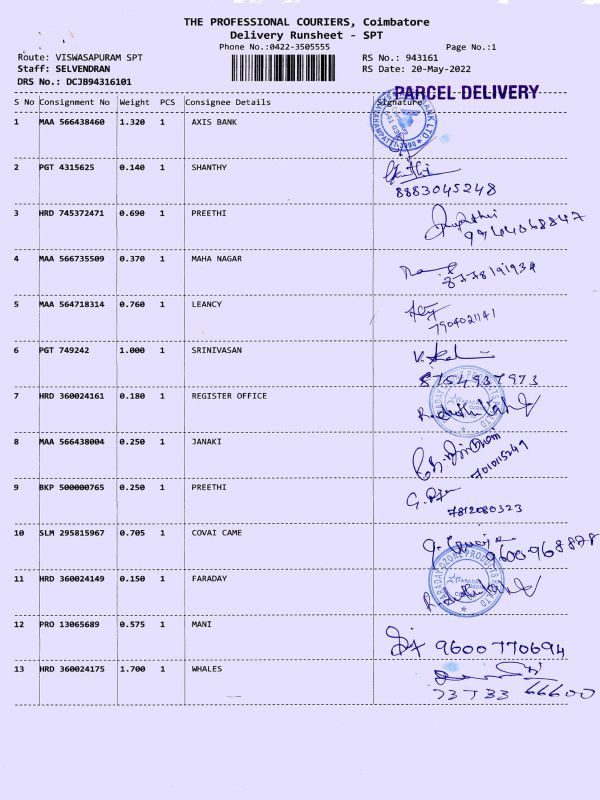 THE PROFESSIONAL COURIERS, Coimbatore
Delivery Runsheet - SPT
Phone No.:0422-3505555 Page No.:1
Route: VISWASAPURAM SPT RS No.: 943161
Staff: SELVENDRAN RS Date: 20-May-2022
DRS No.: DCJB94316101
PARCEL DELIVERY
S No Consignment No Weight PCS Consignee Details Signature
1 MAA 566438460 1.320 1 AXIS BANK
2 PGT 4315625 0.140 1 SHANTHY
8883045248
3 HRD 745372471 0.690 1 PREETHI
4 MAA 566735509 0.370 1 MAHA NAGAR
8778191934
5 MAA 564718314 0.760 1 LEANCY
7904021141
6 PGT 749242 1.000 1 SRINIVASAN
8754937973
7 HRD 360024161 0.180 1 REGISTER OFFICE
8 MAA 566438004 0.250 1 JANAKI
9 BKP 500000765 0.250 1 PREETHI
7812080323
10 SLM 295815967 0.705 1 COVAI CAME
9600968878
11 HRD 360024149 0.150 1 FARADAY
12 PRO 13065689 0.575 1 MANI
9600770694
13 HRD 360024175 1.700 1 WHALES
73733 66600